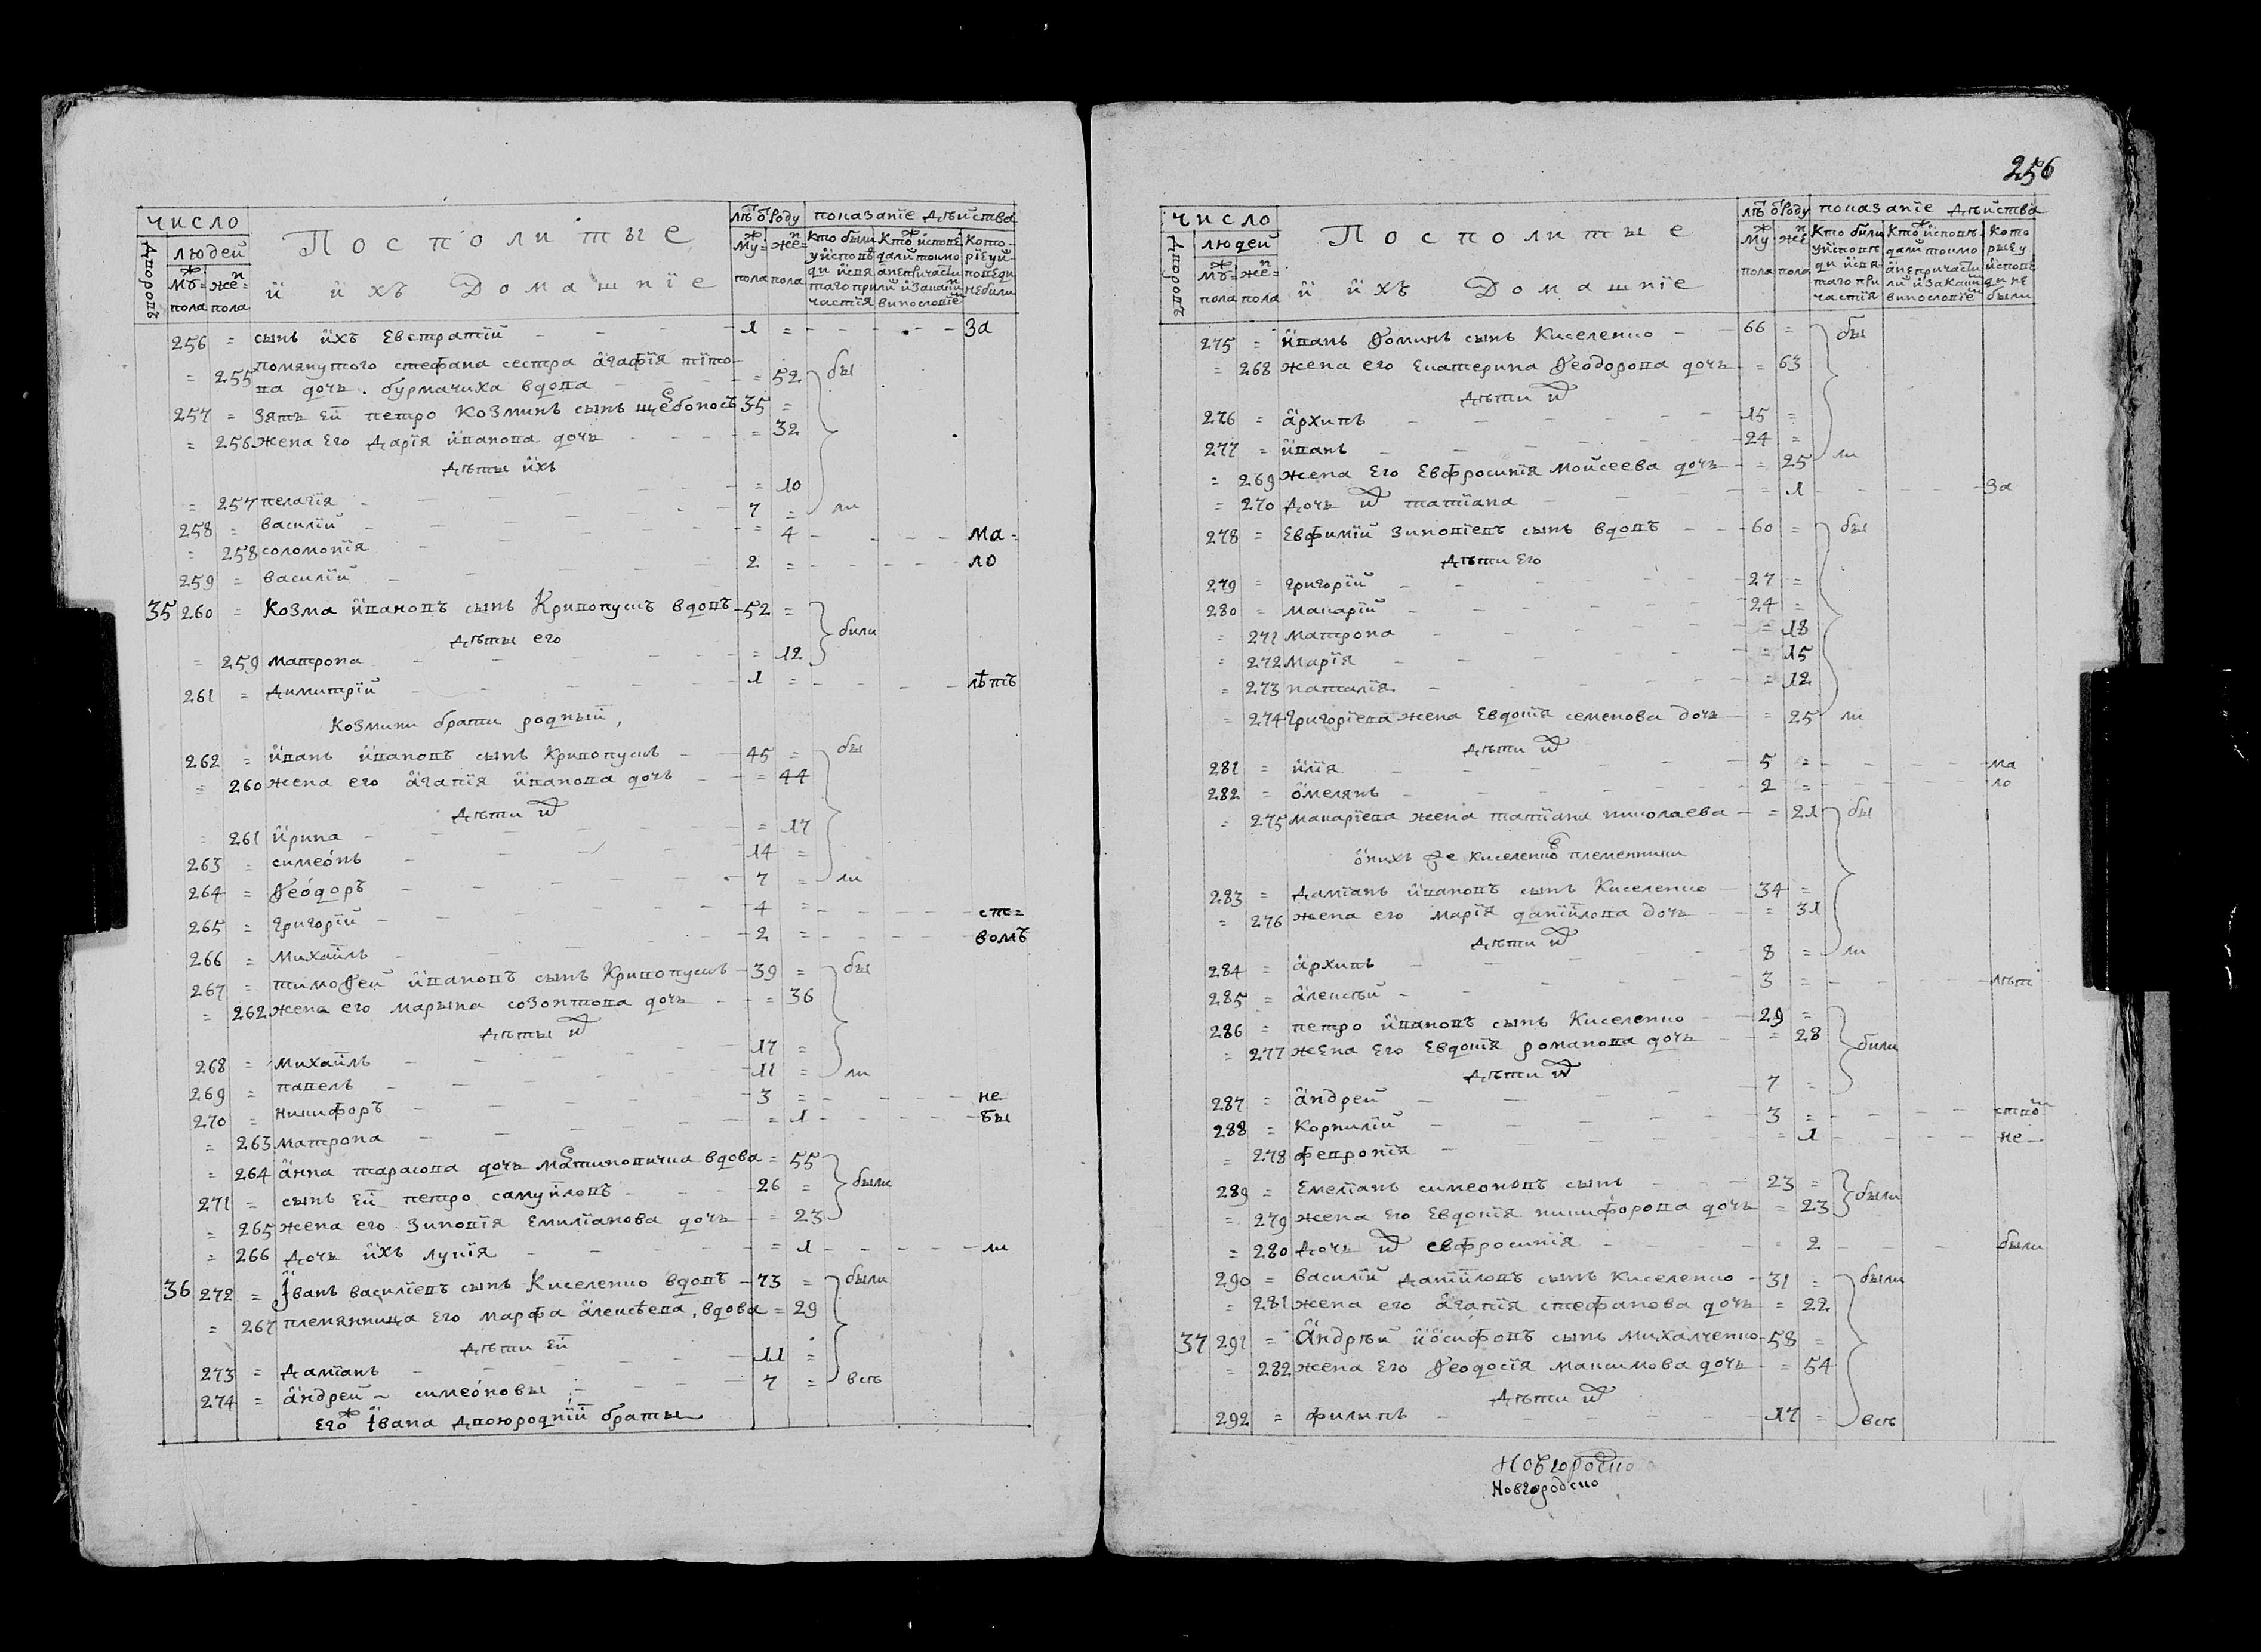 число
Посполитые
лѣ ѿ роду
показание дѣйства
дворовъ
людей
и ихъ Домашние
муж
жен
пола
пола
256 = сынъ ихъ Евстратий 1 = За
= 255 помянутого стефана сестра агафия тито
ва дочь. бурмачиха вдова = 52 бы
257 = Зять ей петро Козминъ сынъ щербоносъ 35 =
= 256 жена его дария иванова дочь = 32
дѣты ихъ
= 257 пелагия = 10
258 = василий 7 = ли
= 258 соломония = 4 ма=
259 = василий 2 = ло
35 260 = Козма ивановъ сынъ Кривопускъ вдовъ 52 =
дѣты его били
= 259 матрона = 12
261 = димитрий 1 = лѣтъ
Козмини брати родный,
262 = иванъ ивановъ сынъ Кривопускъ 45 = бы
= 260 жена его агапия иванова дочь = 44
дѣти их
= 261 ирина = 17
263 = симеонъ 14 =
264 = Ѳеодоръ 7 = ли
265 = григорий 4 = ст=
266 = михаилъ 2 = вомъ
267 = тимоѲей ивановъ сынъ Кривопускъ 39 = бы
= 262 жена его марына созонтова дочь = 36
дѣты их
268 = михаилъ 17 =
269 = павелъ 11 = ли
270 = никифоръ 3 = не
= 263 матрона = 1 бы
= 264 анна тарасова дочь мартиновичка вдова = 55
271 = сынъ ей петро самуйловъ 26 = были
= 265 жена его зиновия Емилианова дочь = 23
= 266 дочь ихъ лукия = 1 ли
36 272 = Іванъ василиевъ сынъ Киселенко вдовъ 73 = были
= 267 племянница его марфа алексѣева, вдова = 29
дѣти ей
273 = дамианъ 11 =
274 = андрей симеоновы 7 = всѣ
Его ж Ивана двоюродний браты
256
число
Посполитые
лѣ ѿ роду
показание дѣйства
дворовъ
людей
и ихъ Домашние
муж
жен
пола
пола
275 = иванъ Ѳоминъ сынъ Киселенко 66 = бы
= 268 жена его Екатерина Ѳеодорова дочь = 63
дѣти их
276 = архипъ 15 =
277 = иванъ 24 =
= 269 жена его Евфросиния Мойсеева дочь = 25 ли
= 270 дочь их татиана = 1 За
278 = Евфимий зиновиевъ сынъ вдовъ 60 = бы
дѣти Его
279 = григорий 27 =
280 = макарий 24 =
= 271 матрона = 18
= 272 мария = 15
= 273 наталия = 12
= 274 григориева жена Евдокия семенова дочь = 25 ли
дѣти их
281 = илия 5 = ма
282 = омелянъ 2 = ло
= 275 макариева жена татиана николаева = 21 бы
онихъ же киселенков племенники
283 = дамианъ ивановъ сынъ Киселенко 34 =
= 276 жена его мария данийлова дочь = 31
дѣти их
284 = архипъ 8 = ли
285 = алексѣй 3 = лѣт
286 = петро ивановъ сынъ Киселенко 29 =
= 277 жена Его Евдокия романова дочь = 28 били
дѣти их
287 = андрей 7 =
288 = Корнилий 3 = ством
= 278 феврония = 1 не
289 = Емелианъ симеоновъ сынъ 23 = были
= 279 жена Его Евдокия никифорова дочь = 23
= 280 дочь их евфросиния = 2 были
290 = василий данииловъ сынъ киселенко 31 = были
= 281 жена его агапия стефанова дочь = 22
37 291 = Андрѣй иосифовъ сынъ михалченко 58 =
= 282 жена Его Ѳеодосия максимова дочь = 54
дѣти их
292 = филипъ 17 = всѣ
Новгородско
Новгородско